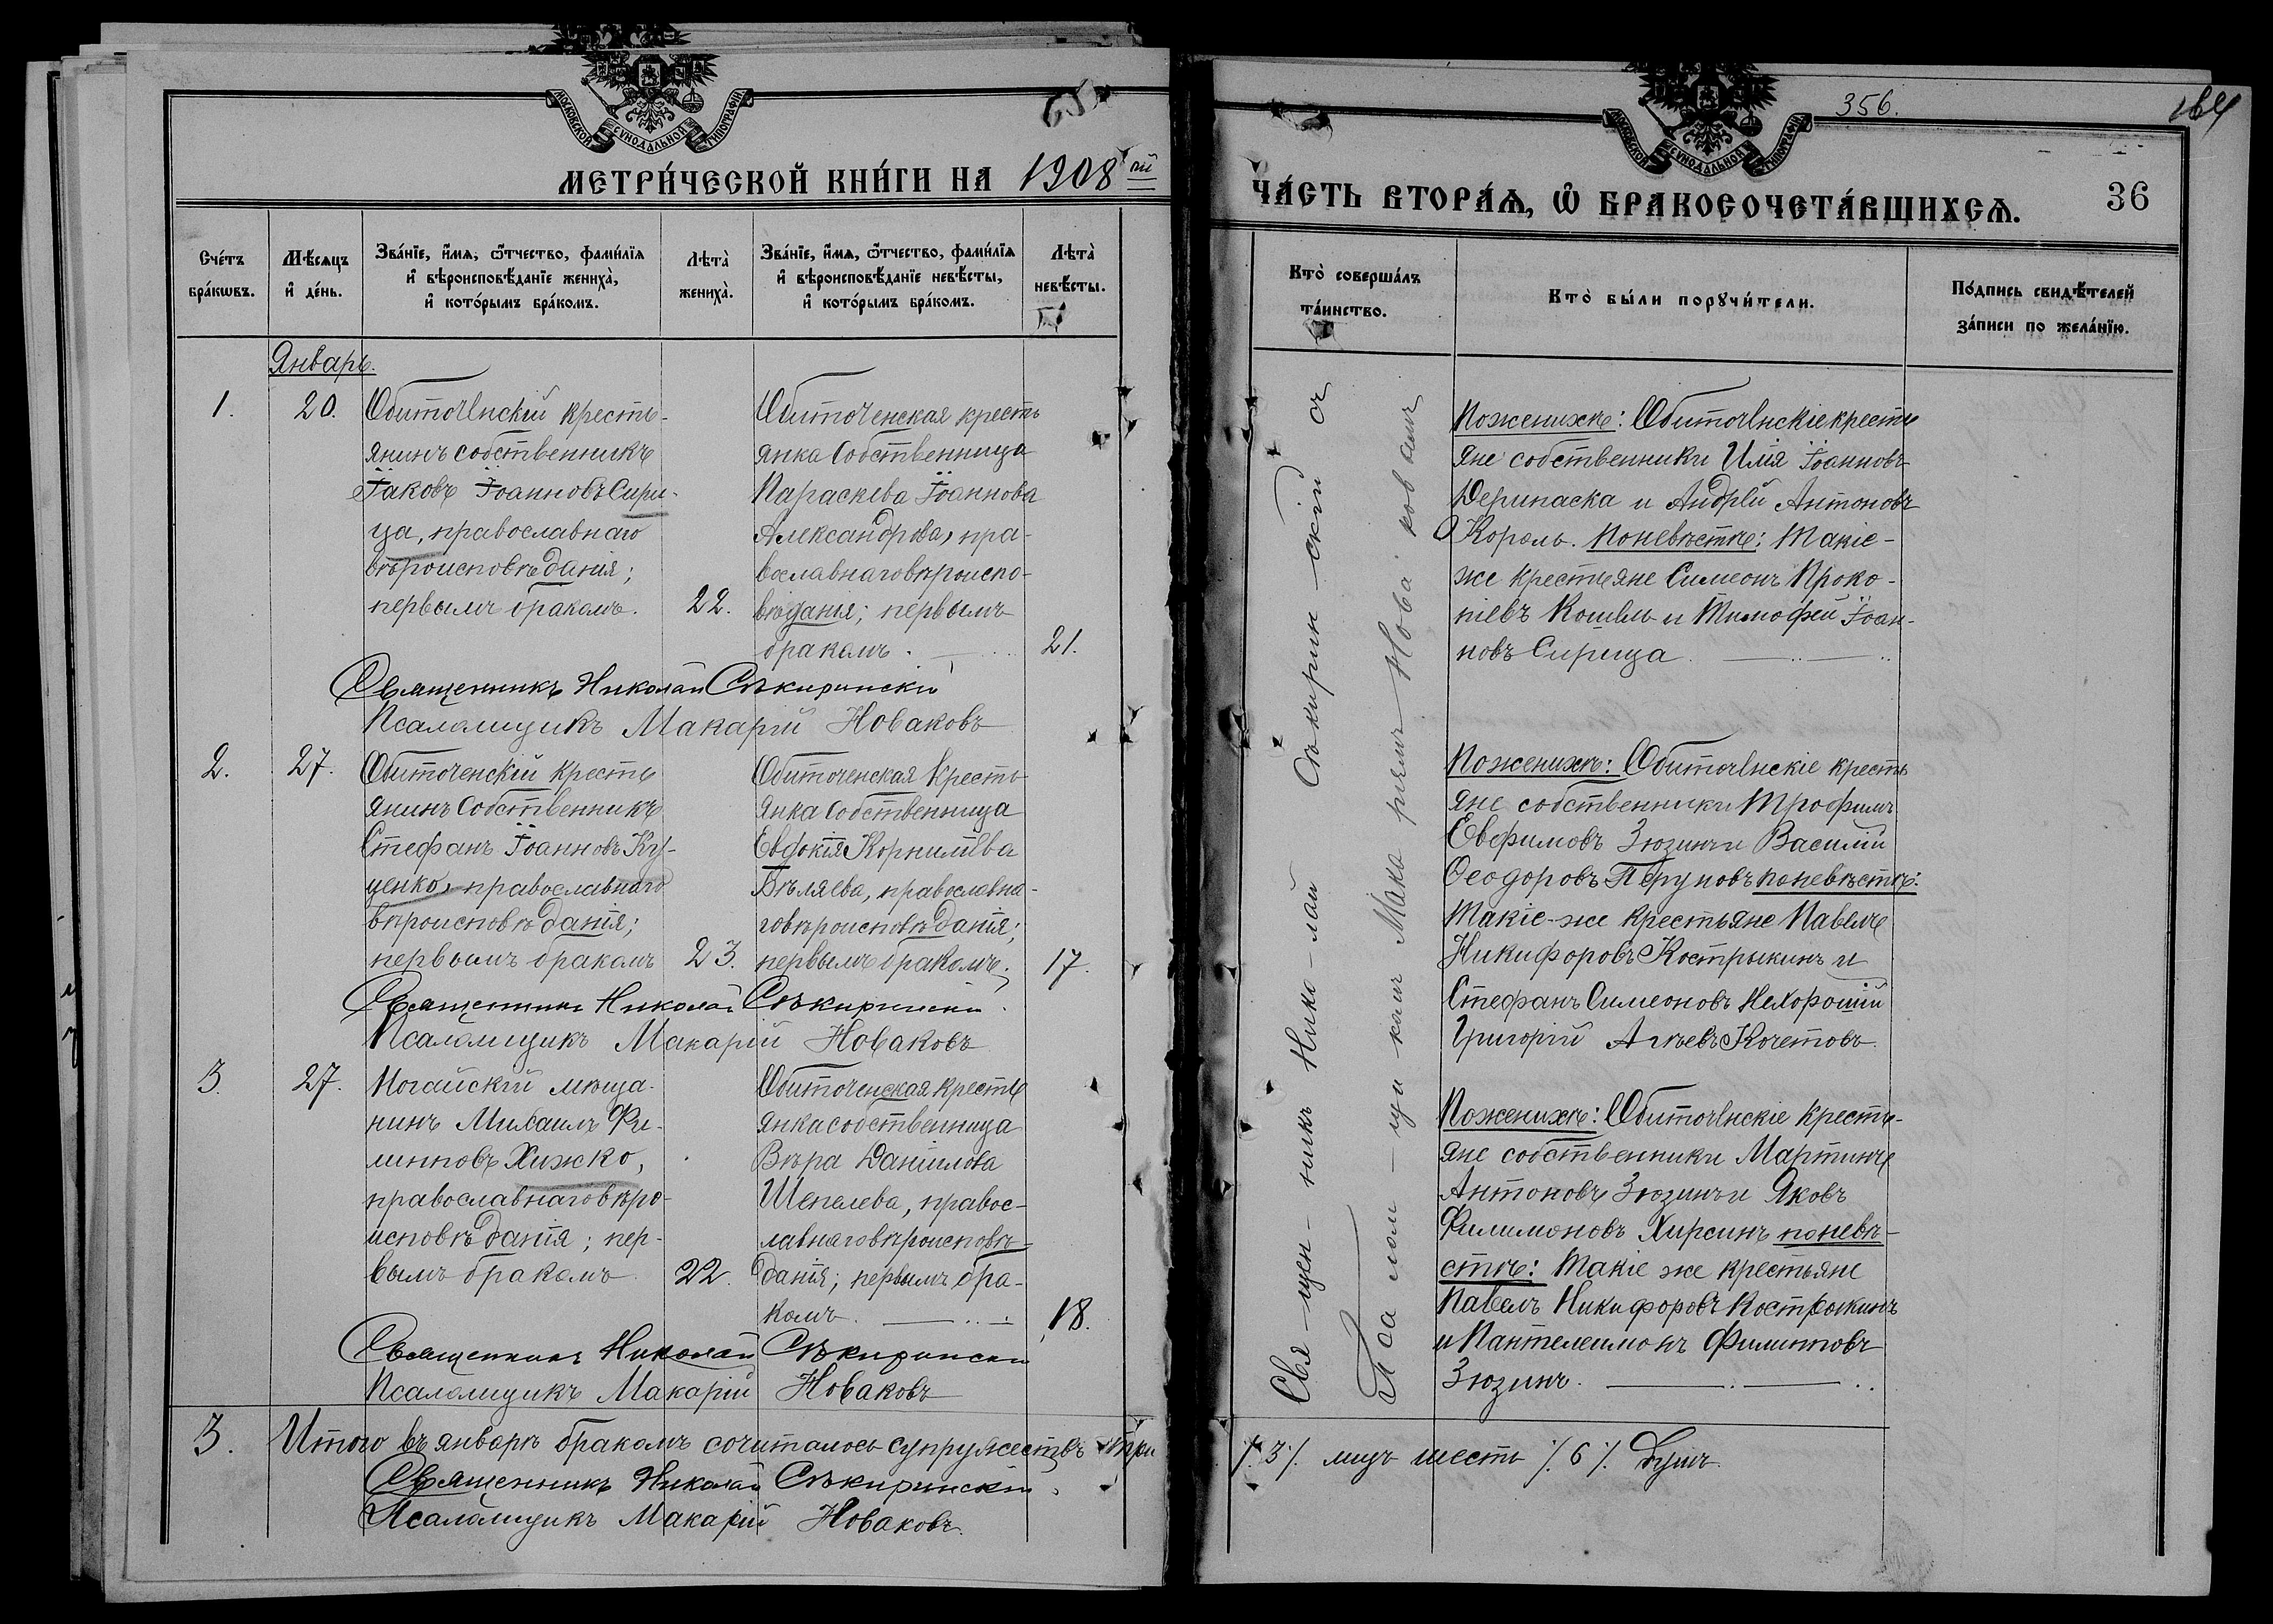 МОСКОВСКОЙ СѴНОДАЛЬНОЙ ТИПОГРАФІИ
МЕТРИ́ЧЕСКОЙ КНИ́ГИ НА 1908 ой
Сче́тъ бра́кѡвъ.
Мѣ́сяцъ и҆ де́нь.
Зва́нїе, и҆́мѧ, ѻ҆́тчество, фами́лїѧ и҆ вѣроисповѣ́данїе жениха̀, и҆ кото́рымъ бра́комъ.
Лѣта̀ жениха̀.
Зва́нїе, и҆́мѧ, ѻ҆́тчество, фами́лїѧ и҆ вѣроисповѣ́данїе невѣ́сты, и҆ кото́рымъ бра́комъ.
Лѣта̀ невѣ́сты.
Январь.
1.
20.
Обиточенскій кресть-
янинъ собственникъ
Іаковъ Іоанновъ Сири-
ца, православнаго
вѣроисповѣданія;
первымъ бракомъ.
22.
Обиточенская кресть
янка собственница
Параскева Іоаннова
Александрова, пра-
вославнаго вѣроиспо-
вѣданія; первымъ
бракомъ.
21.
Священникъ Николай Сѣкиринскій
Псаломщикъ Макарій Новаковъ
2.
27.
Обиточенскій кресть
янинъ собственникъ
Стефанъ Іоанновъ Ку-
ценко, православнаго
вѣроисповѣданія;
первымъ бракомъ
23.
Обиточенская кресть
янка собственница
Евдокія Корниліева
Бѣляева, православна-
го вѣроисповѣданія;
первымъ бракомъ.
17.
Священникъ Николай Сѣкиринскій
Псаломщикъ Макарій Новаковъ
3.
27.
Ногайскій мѣща-
нинъ Михаилъ Фи-
липповъ Хижко,
православнаго вѣро-
исповѣданія; пер-
вымъ бракомъ
22.
Обиточенская кресть
янка собственница
Вѣра Даніилова
Шепелева, правос-
лавнаго вѣроисповѣ-
данія; первымъ бра-
комъ.
18.
Священникъ Николай Сѣкиринскій
Псаломщикъ Макарій Новаковъ
3. Итого въ январѣ бракомъ сочиталось супружествъ три
Священникъ Николай Сѣкиринскій
Псаломщикъ Макарій Новаковъ.
356.
164
МОСКОВСКОЙ СѴНОДАЛЬНОЙ ТИПОГРАФІИ
ЧА́СТЬ ВТОРА́Ѧ, Ѡ҆ БРАКОСОЧЕТА́ВШИХСѦ.
36
Кто̀ соверша́лъ та́инство.
Кто̀ бы́ли порꙋчи́тели.
По́дпись свидѣ́телей за́писи по жела́нїю.
Свя-щен-никъ Нико-лай Сѣкирин-скій съ
Псалом-щикомъ Макаріемъ Новаковымъ
По женихѣ: Обиточенскіе кресть
яне собственники Илія Іоанновъ
Дерипаска и Андрей Антоновъ
Король. По невѣстѣ: такіе-
же крестьяне Симеонъ Проко-
піевъ Кошель и Тимофей Іоан-
новъ Сирица.
По женихѣ: Обиточенскіе кресть
яне собственники Трофимъ
Евфимовъ Зюзинъ и Василій
Ѳеодоровъ Перуновъ по невѣстѣ:
такіе-же крестьяне Павелъ
Никифоровъ Кострыкинъ и
Стефанъ Симеоновъ Нехорошій
Григорій Агѣевъ Кочетовъ.
По женихѣ: Обиточенскіе кресть-
яне собственники Мартинъ
Антоновъ Зюзинъ и Яковъ
Филимоновъ Хирсинъ по невѣ-
стѣ: такіе же крестьяне
Павелъ Никифоровъ Кострыкинъ
и Пантелеимонъ Филипповъ
Зюзинъ.
/. 3 /. лицъ шесть /. 6 /. душъ.